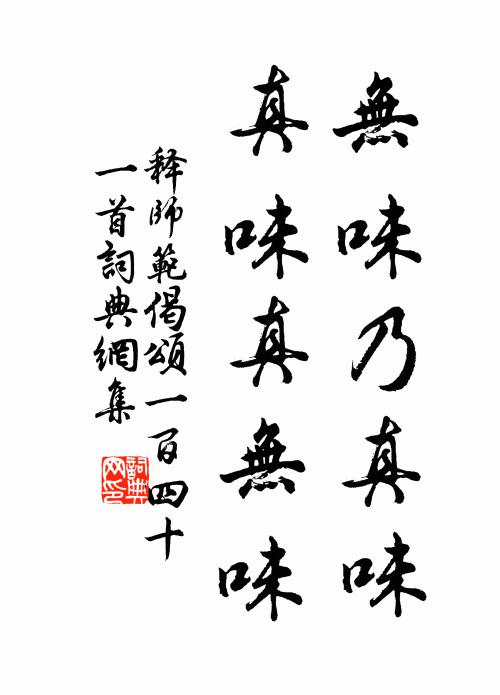 無味乃真味
真味真無味
释師範偈頌一百四十
一首詞典網集
詞典
网印